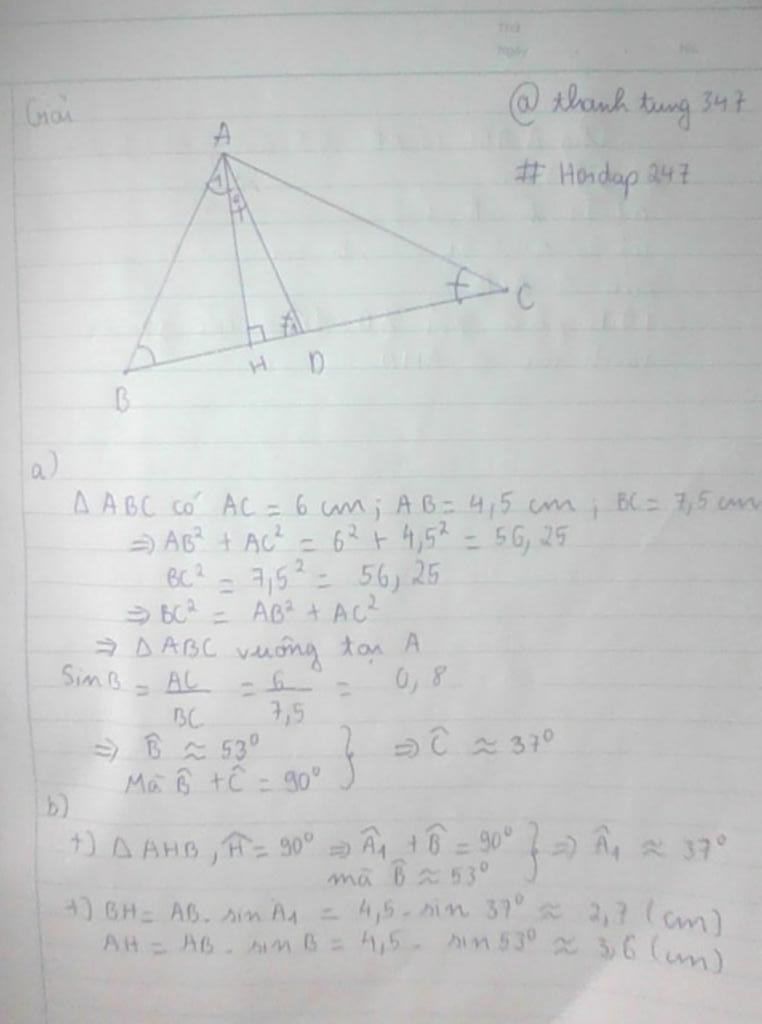 Thứ
Ngày
No.
Giải
@ thanh tung 347
# Hoidap 247
A
1
2
1
B
H
D
C
a)
Δ ABC có AC = 6 cm ; AB = 4,5 cm ; BC = 7,5 cm
⇒ AB² + AC² = 6² + 4,5² = 56,25
BC² = 7,5² = 56,25
⇒ BC² = AB² + AC²
⇒ Δ ABC vuông tại A
Sin B = AC/BC = 6/7,5 = 0,8
⇒ B̂ ≈ 53°
Mà B̂ + Ĉ = 90° } ⇒ Ĉ ≈ 37°
b)
+) Δ AHB, Ĥ = 90° ⇒ Â₁ + B̂ = 90°
mà B̂ ≈ 53° } ⇒ Â₁ ≈ 37°
+) BH = AB. sin A₁ = 4,5. sin 37° ≈ 2,7 (cm)
AH = AB. sin B = 4,5. sin 53° ≈ 3,6 (cm)